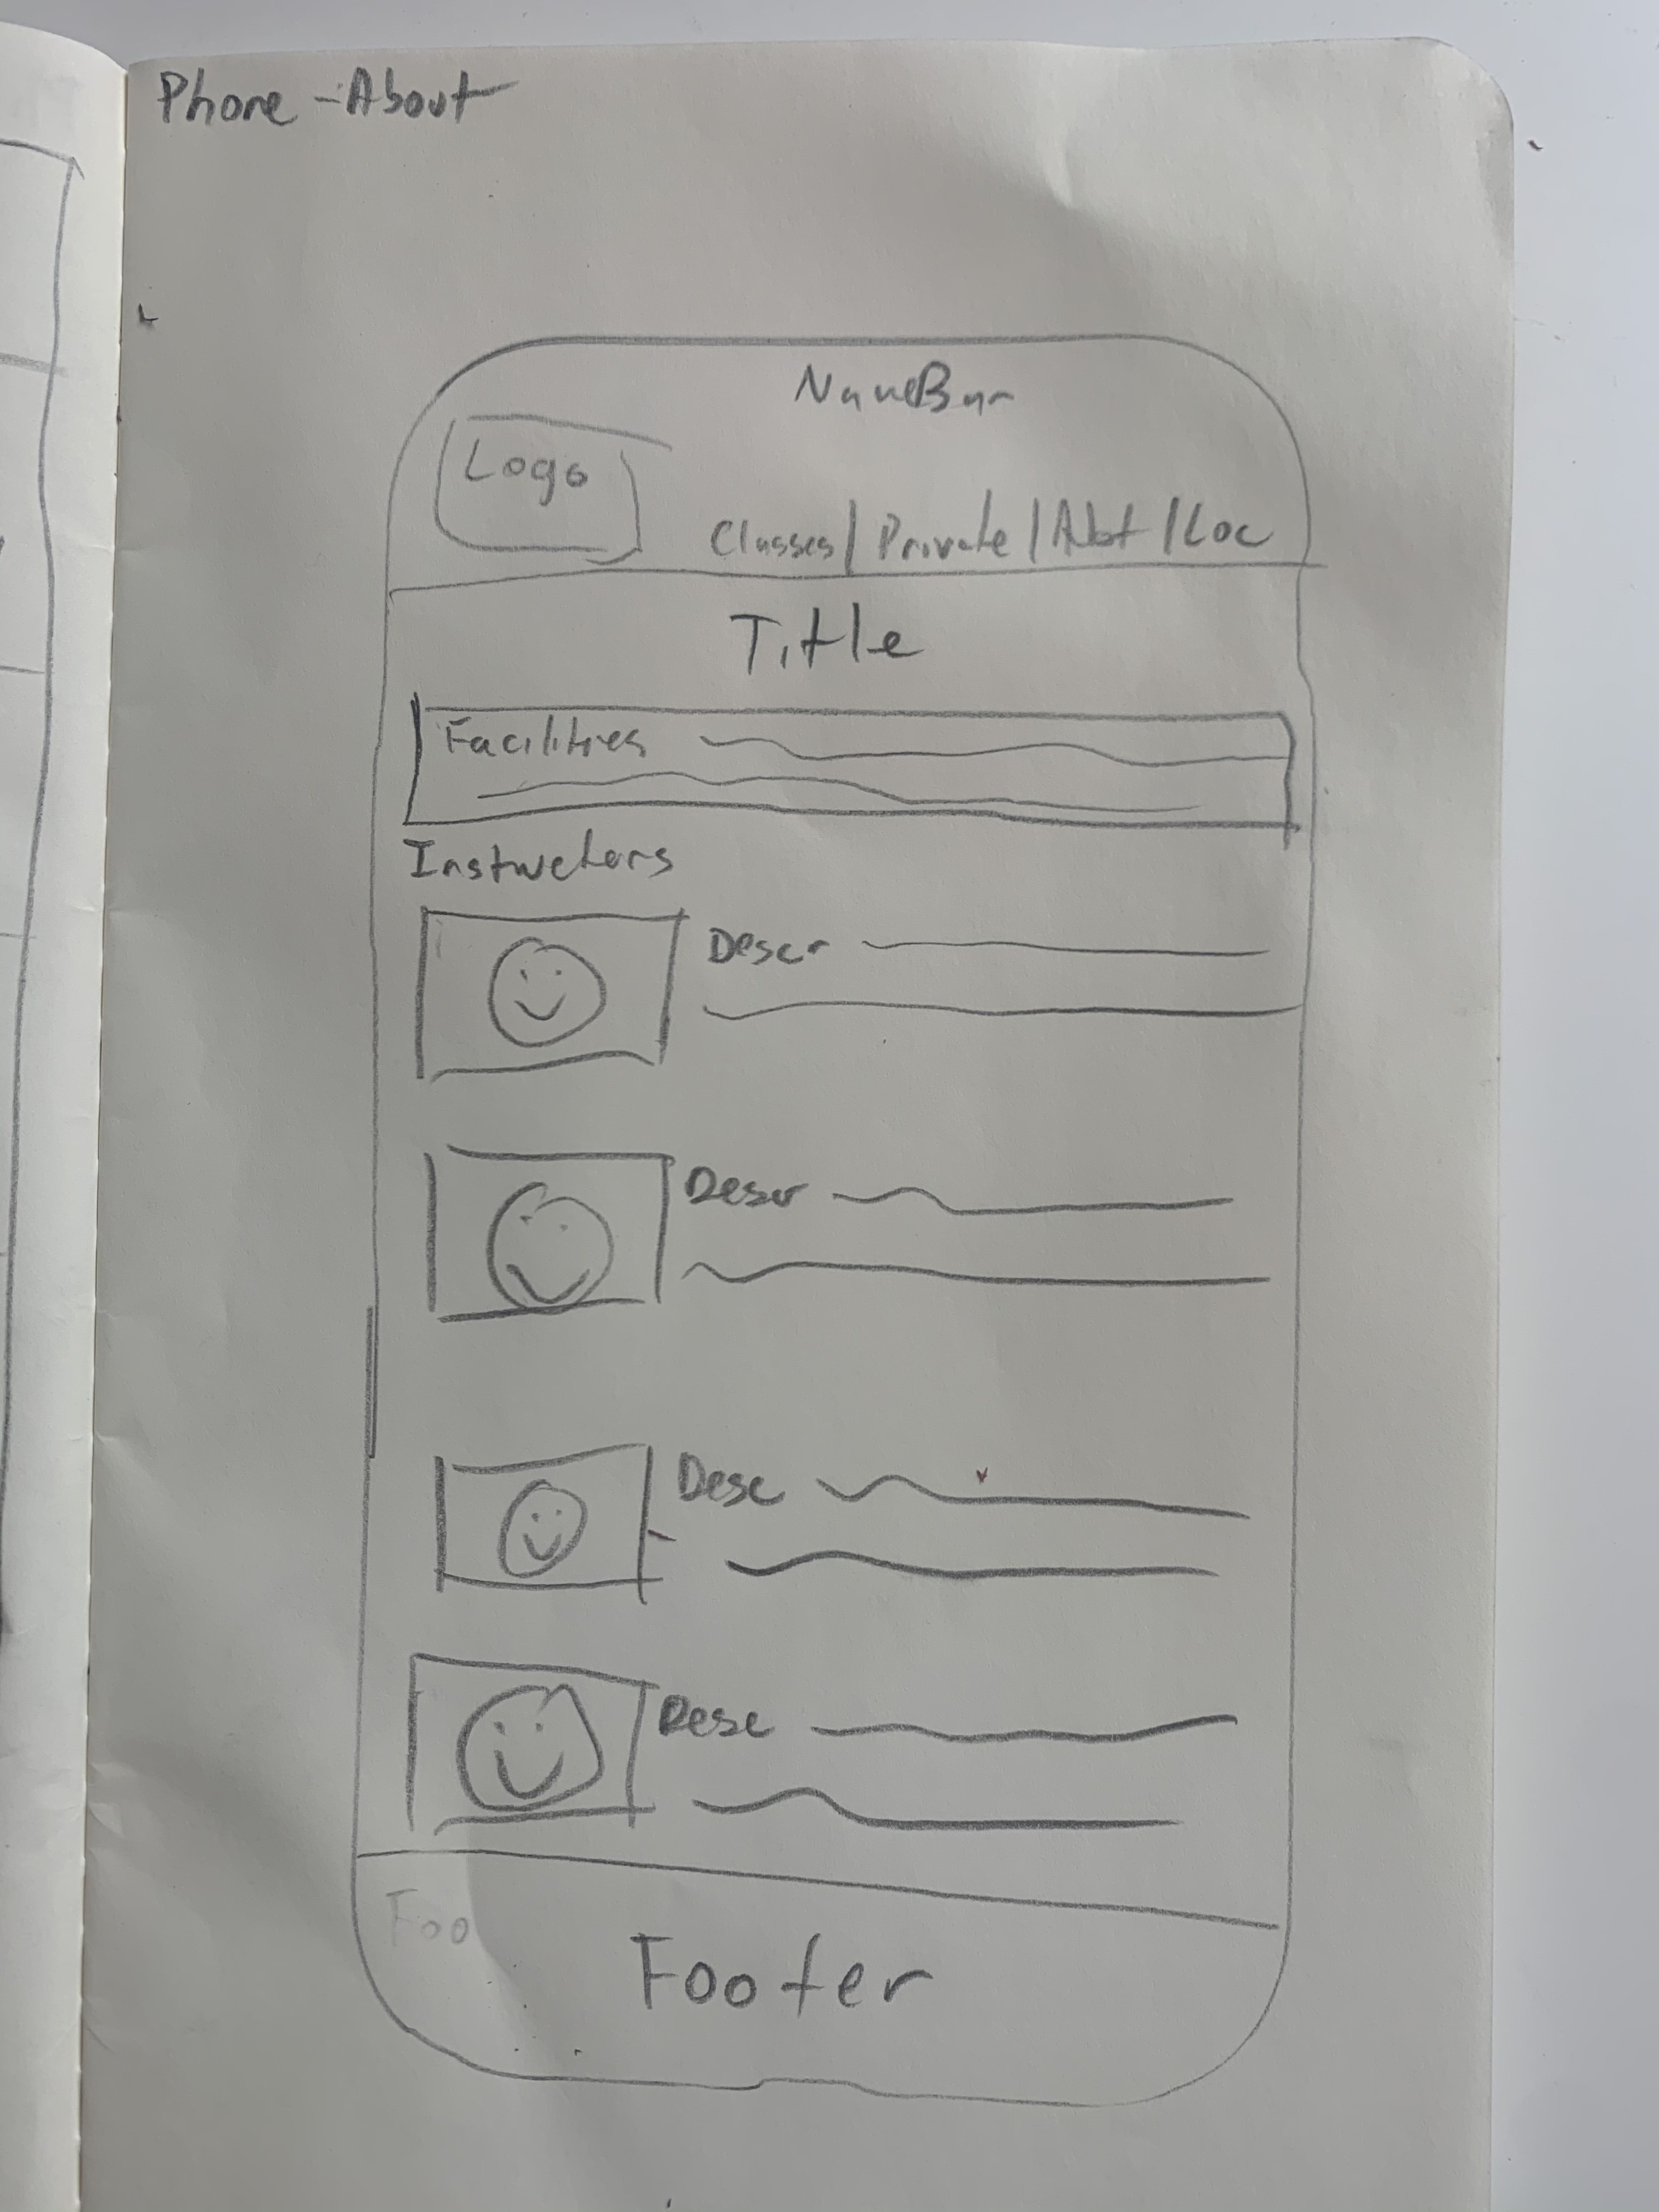 Phone - About
NaveBar
Logo
Classes | Private | Abt | Loc
Title
Facilities
Instructors
Descr
Descr
Desc
Desc
Foo
Footer